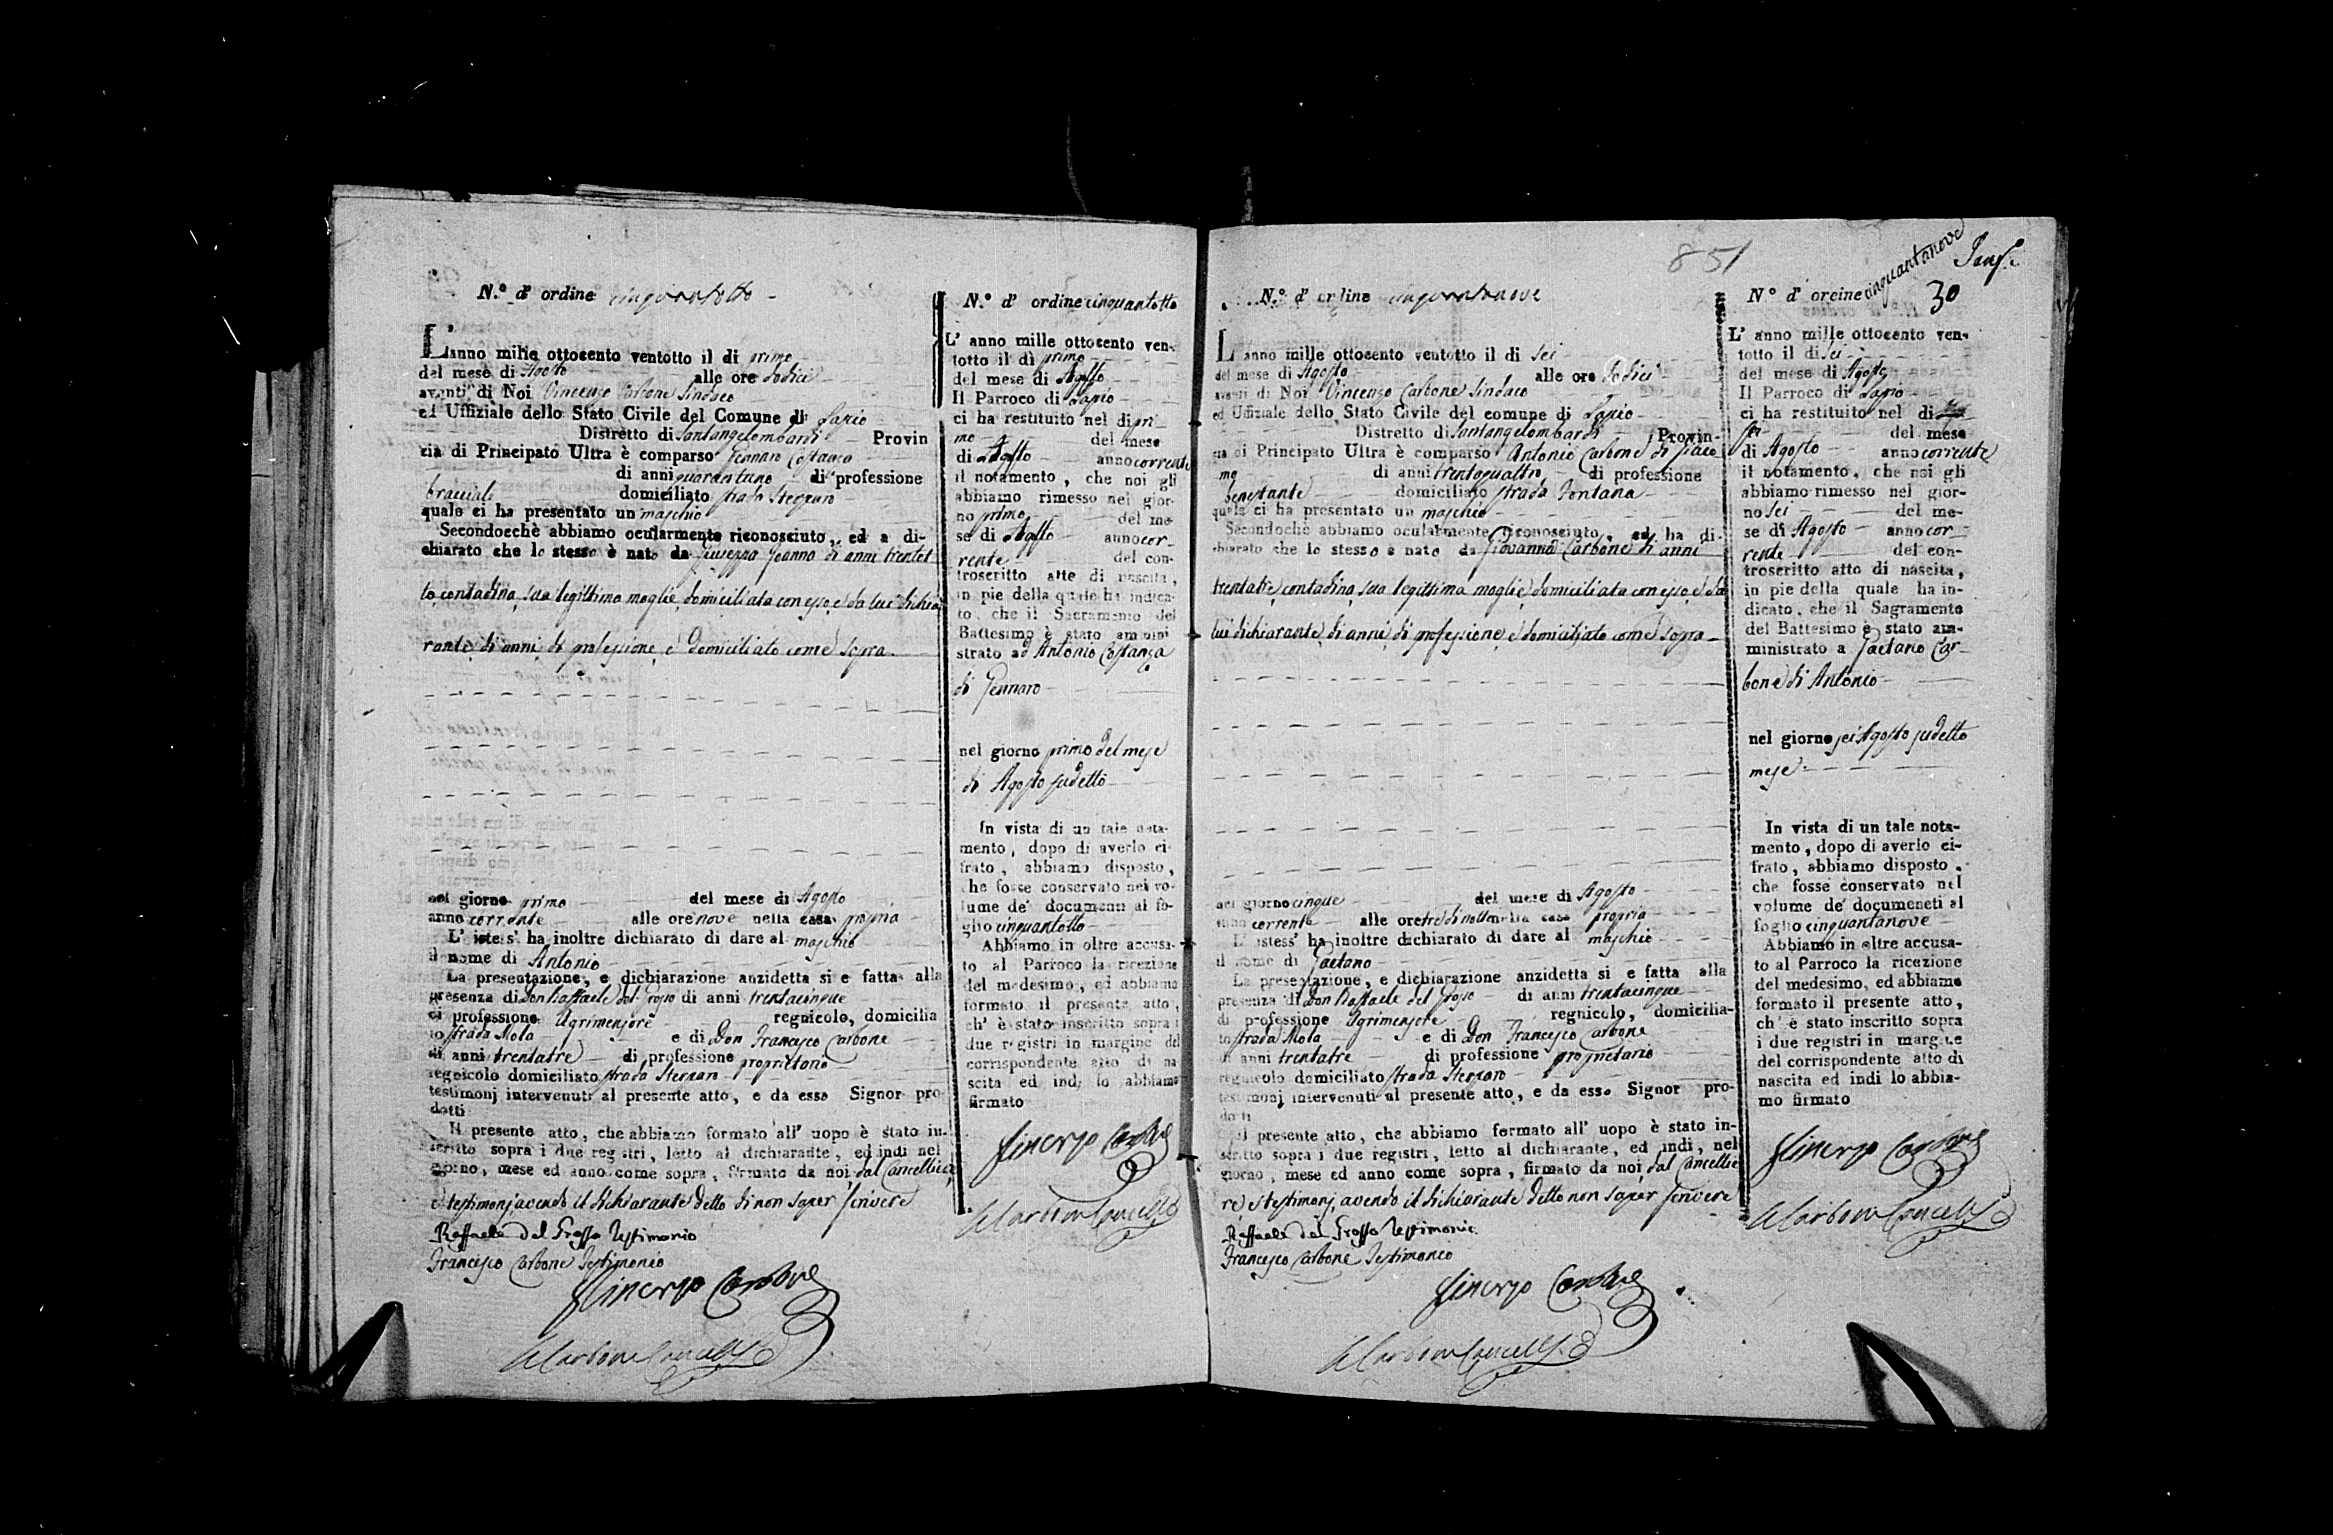 N.º d' ordine cinquantotto
L'anno mille ottocento ventotto il di primo
del mese di Agosto alle ore dodici
avanti di Noi Vincenzo Carbone Sindaco
ed Uffiziale dello Stato Civile del Comune di Lapio
Distretto di Santangelombardi Provin
cia di Principato Ultra è comparso Gennaro Costanza
di anni quarantuno di professione
bracciale domiciliato strada Sterparo
quale ci ha presentato un maschio
Secondocchè abbiamo ocularmente riconosciuto, ed a di-
chiarato che lo stesso è nato da Giuseppa Joanno di anni trentot
to contadina, sua legittima moglie, domiciliata con esso, e da lui dichia
rante, di anni, di professione, e domiciliato come sopra
nel giorno primo del mese di Agosto
anno corrente alle ore nove nella casa propria
L' istess' ha inoltre dichiarato di dare al maschio
il nome di Antonio
La presentazione, e dichiarazione anzidetta si e fatta alla
presenza di Don Raffaele del Grosso di anni trentacinque
di professione Agrimensore regnicolo, domicilia
to strada Mola e di Don Francesco Carbone
di anni trentatre di professione proprietario
regnicolo domiciliato strada Sterparo
testimonj intervenuti al presente atto, e da esso Signor pro
dotti
Il presente atto, che abbiamo formato all' uopo è stato in-
scritto sopra i due registri, letto al dichiarante, ed indi nel
giorno, mese ed anno come sopra, firmato da noi, dal Cancelliere,
e testimonj, avendo il dichiarante detto di non saper scrivere
Raffaele del Grosso Testimonio
Francesco Carbone Testimonio
Vincenzo Carbone
N.º d' ordine cinquantotto
L' anno mille ottocento ven-
totto il dì primo
del mese di Agosto
Il Parroco di Lapio
ci ha restituito nel di pri
mo del mese
di Agosto anno corrente
il notamento, che noi gli
abbiamo rimesso nel gior-
no primo del me
se di Agosto anno cor-
rente del con-
troscritto atto di nascita,
in pie della quale ha indica-
to, che il Sacramento del
Battesimo è stato ammini
strato ad Antonio Costanza
di Gennaro
nel giorno primo del mese
di Agosto sudetto
In vista di un tale nota-
mento, dopo di averlo ci-
frato, abbiamo disposto,
che fosse conservato nel vo-
lume de' documenti al fo-
glio cinquantotto
Abbiamo in oltre accusa-
to al Parroco la ricezione
del medesimo, ed abbiamo
formato il presente atto,
ch' è stato inscritto sopra i
due registri in margine del
corrispondente atto di na
scita ed indi lo abbiamo
firmato
Vincenzo Carbone
851
Pauf.
30
N.º d' ordine cinquantanove
L' anno mille ottocento ventotto il di sei
del mese di Agosto alle ore dodici
avanti di Noi Vincenzo Carbone Sindaco
ed Uffiziale dello Stato Civile del comune di Lapio
Distretto di Santangelombardi Provin-
cia di Principato Ultra è comparso Antonio Carbone di Giaco
mo di anni trentaquattro di professione
benestante domiciliato strada Fontana
quale ci ha presentato un maschio
Secondochè abbiamo ocularmente riconosciuto, ed ha di-
chiarato che lo stesso è nato da Giovanna Carbone di anni
trentatre, contadina, sua legittima moglie, domiciliata con esso, e da
lui dichiarante, di anni, di professione, e domiciliato come sopra
nel giorno cinque del mese di Agosto
anno corrente alle ore tre di notte nella casa propria
L' istess' ha inoltre dichiarato di dare al maschio
il nome di Gaetano
La presentazione, e dichiarazione anzidetta si e fatta alla
presenza di Don Raffaele del Grosso di anni trentacinque
di professione Agrimensore regnicolo, domicilia-
to strada Mola e di Don Francesco Carbone
di anni trentatre di professione proprietario
regnicolo domiciliato strada Sterparo
testimonj intervenuti al presente atto, e da esso Signor pro-
dotti
Il presente atto, che abbiamo formato all' uopo è stato in-
scritto sopra i due registri, letto al dichiarante, ed indi, nel
giorno, mese ed anno come sopra, firmato da noi, dal Cancellie
re, e testimonj, avendo il dichiarante detto non saper scrivere
Raffaele del Grosso Testimonio
Francesco Carbone Testimonio
Vincenzo Carbone
Nº d' ordine cinquantanove
L' anno mille ottocento ven-
totto il di sei
del mese di Agosto
Il Parroco di Lapio
ci ha restituito nel di
sei del mese
di Agosto anno corrente
il notamento, che noi gli
abbiamo rimesso nel gior-
no sei del me-
se di Agosto anno cor-
rente del con-
troscritto atto di nascita,
in pie della quale ha in-
dicato, che il Sagramento
del Battesimo è stato am-
ministrato a Gaetano Car-
bone di Antonio
nel giorno sei Agosto sudetto
mese
In vista di un tale nota-
mento, dopo di averlo ci-
frato, abbiamo disposto,
che fosse conservato nel
volume de' documeneti al
foglio cinquantanove
Abbiamo in oltre accusa-
to al Parroco la ricezione
del medesimo, ed abbiamo
formato il presente atto,
ch' è stato inscritto sopra
i due registri in margine
del corrispondente atto di
nascita ed indi lo abbia-
mo firmato
Vincenzo Carbone